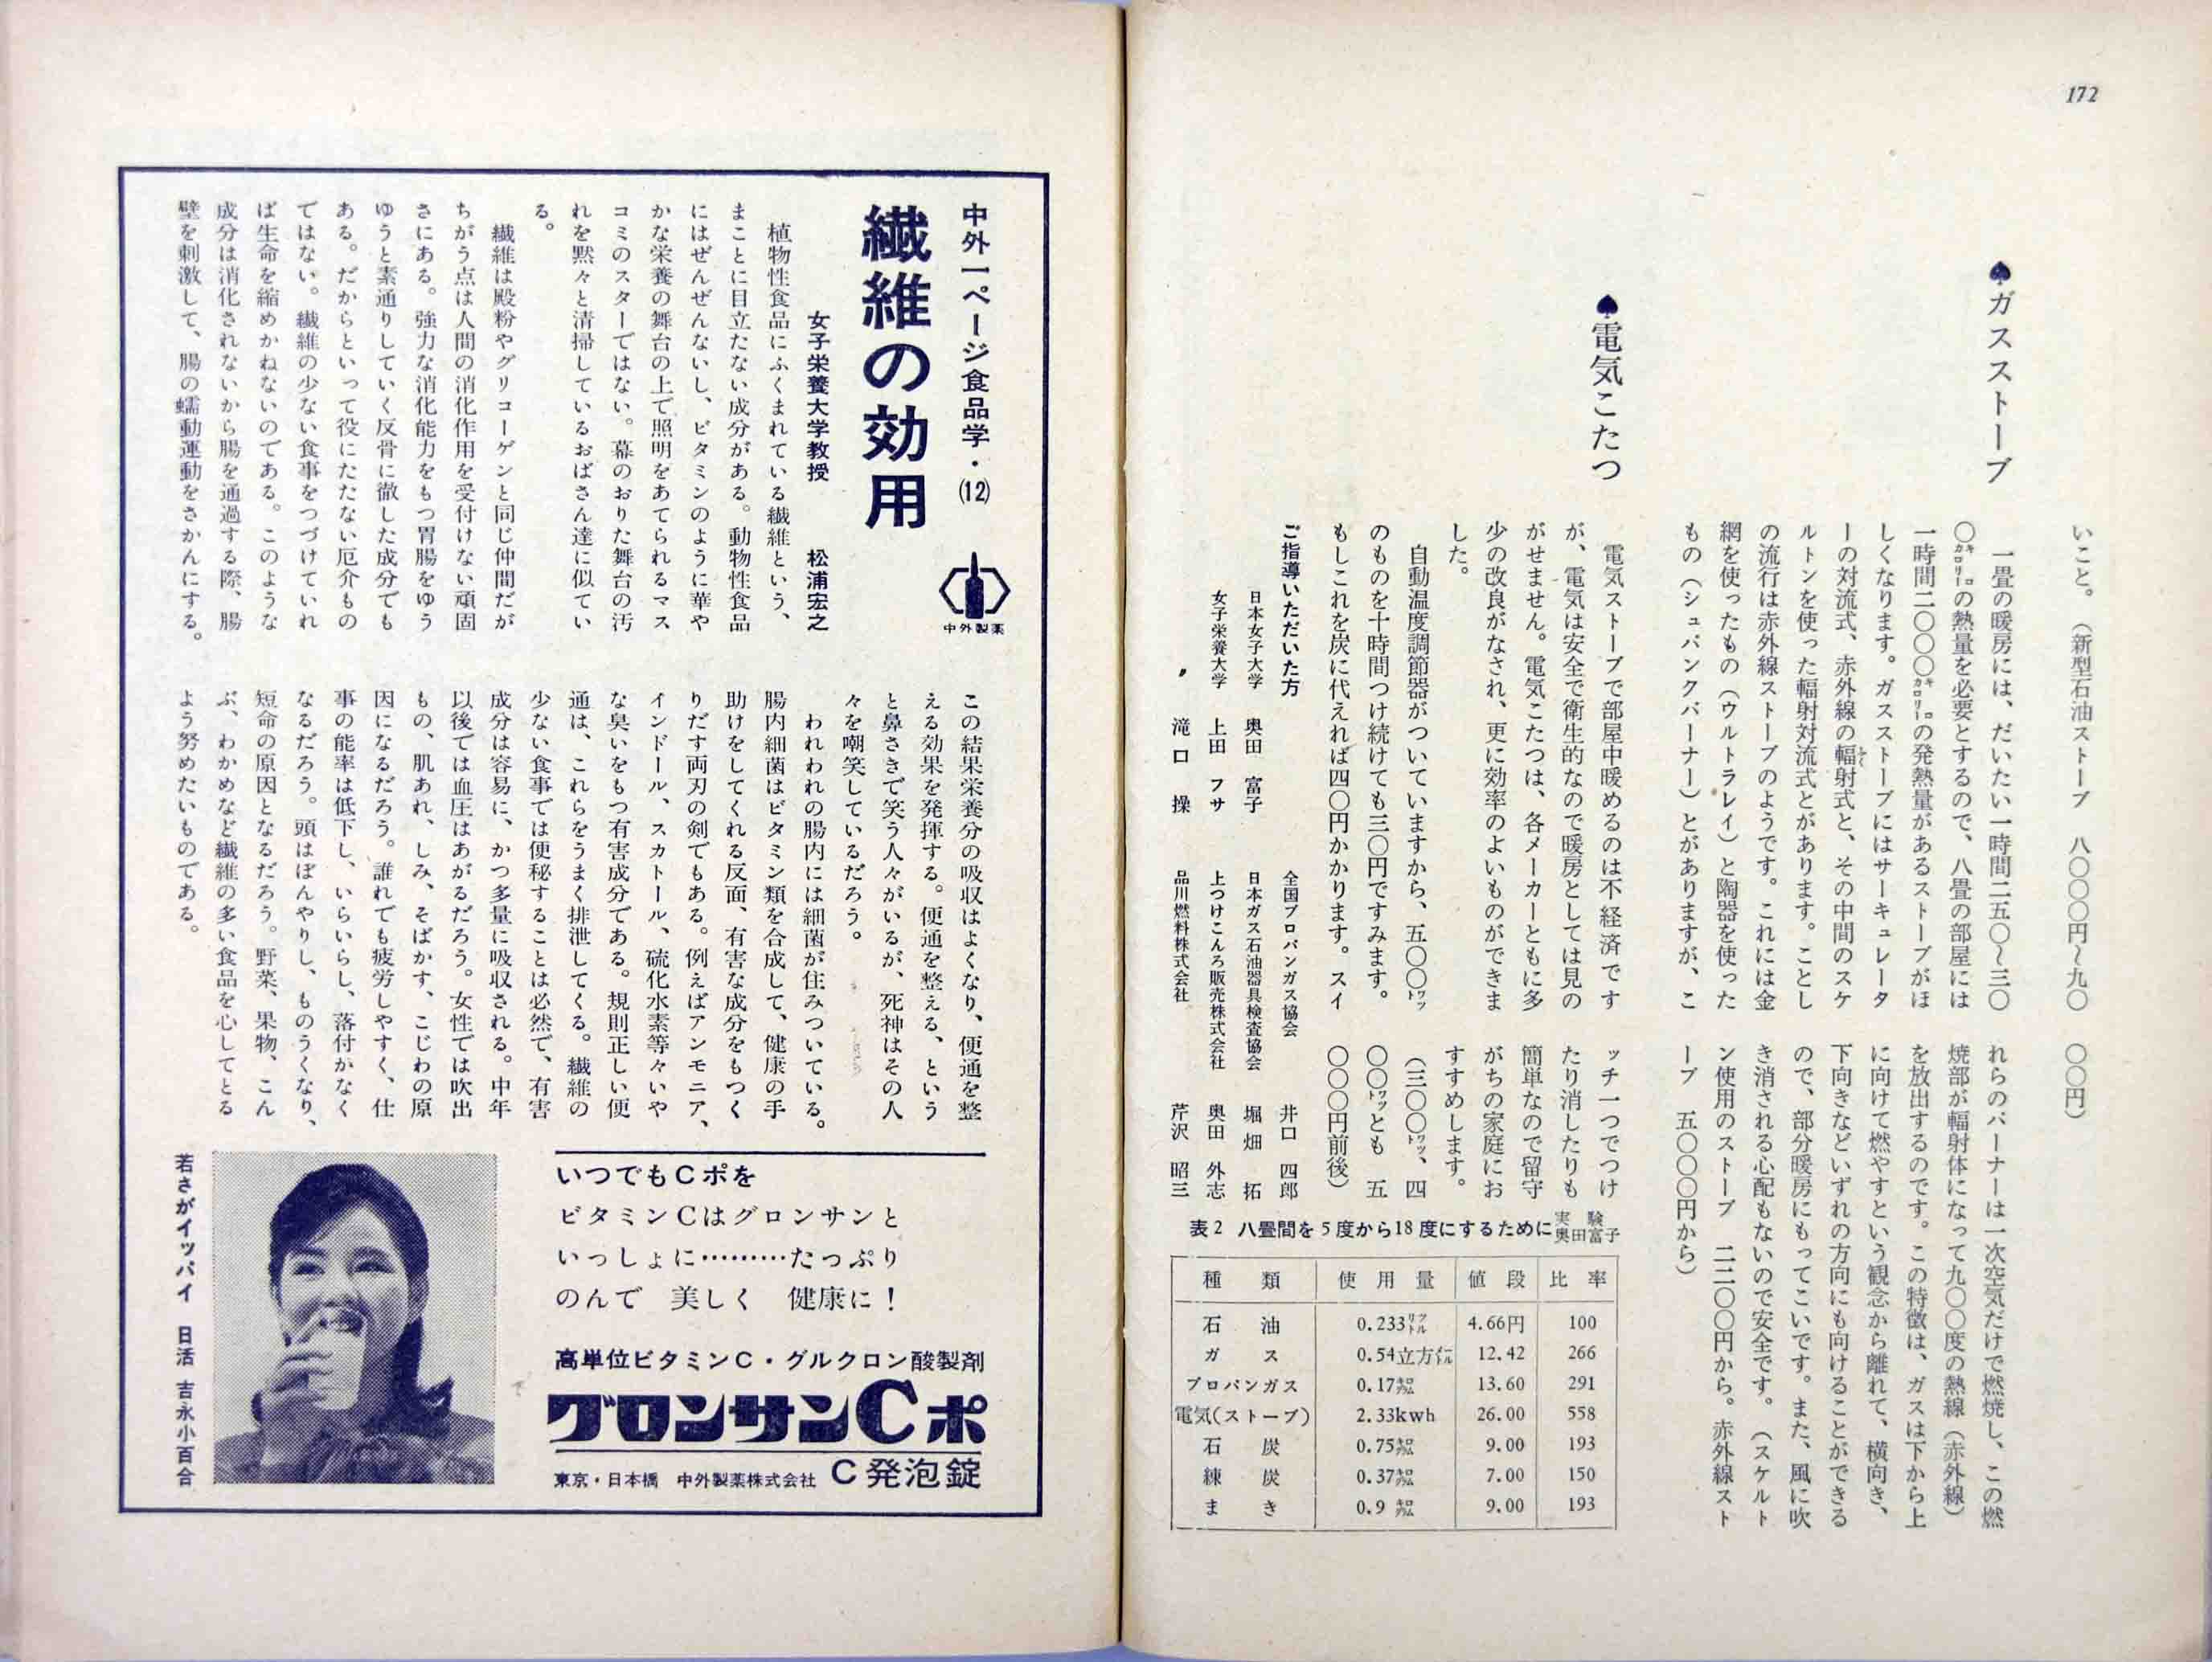 172
いこと。（新型石油ストーブ　八〇〇〇円〜九〇
〇〇円）
♠ガスストーブ
一畳の暖房には、だいたい一時間二五〇〜三〇
〇キロカロリーの熱量を必要とするので、八畳の部屋には
一時間二〇〇〇キロカロリーの発熱量があるストーブがほ
しくなります。ガスストーブにはサーキュレータ
ーの対流式、赤外線の輻射式と、その中間のスケ
ルトンを使った輻射対流式とがあります。ことし
の流行は赤外線ストーブのようです。これには金
網を使ったもの（ウルトラレイ）と陶器を使った
もの（シュバンクバーナー）とがありますが、こ
れらのバーナーは一次空気だけで燃焼し、この燃
焼部が輻射体になって九〇〇度の熱線（赤外線）
を放出するのです。この特徴は、ガスは下から上
に向けて燃やすという観念から離れて、横向き、
下向きなどいずれの方向にも向けることができる
ので、部分暖房にもってこいです。また、風に吹
き消される心配もないので安全です。（スケルト
ン使用のストーブ　二二〇〇円から。赤外線スト
ーブ　五〇〇〇円から）
♠電気こたつ
電気ストーブで部屋中暖めるのは不経済です
が、電気は安全で衛生的なので暖房としては見の
がせません。電気こたつは、各メーカーともに多
少の改良がなされ、更に効率のよいものができま
した。
自動温度調節器がついていますから、五〇〇ワッ
のものを十時間つけ続けても三〇円ですみます。
もしこれを炭に代えれば四〇円かかります。スイ
ッチ一つでつけ
たり消したりも
簡単なので留守
がちの家庭にお
すすめします。
（三〇〇ワット、四
〇〇ワットとも　五
〇〇〇円前後）
ご指導いただいた方
日本女子大学　奥田　富子
女子栄養大学　上田　フサ
〃　滝口　操
全国プロパンガス協会　井口　四郎
日本ガス石油器具検査協会　堀畑　拓
上つけこんろ販売株式会社　奥田　外志
品川燃料株式会社　芹沢　昭三
表2　八畳間を5度から18度にするために　実験 奥田富子
種類　使用量　値段　比率
石油　0.233リットル　4.66円　100
ガス　0.54立方メートル　12.42　266
プロパンガス　0.17キロ　13.60　291
電気(ストーブ)　2.33kwh　26.00　558
石炭　0.75キロ　9.00　193
練炭　0.37キロ　7.00　150
まき　0.9キロ　9.00　193
中外一ページ食品学・(12)
中外製薬
繊維の効用
女子栄養大学教授　松浦宏之
植物性食品にふくまれている繊維という、
まことに目立たない成分がある。動物性食品
にはぜんぜんないし、ビタミンのように華や
かな栄養の舞台の上で照明をあてられるマス
コミのスターではない。幕のおりた舞台の汚
れを黙々と清掃しているおばさん達に似てい
る。
繊維は殿粉やグリコーゲンと同じ仲間だが
ちがう点は人間の消化作用を受付けない頑固
さにある。強力な消化能力をもつ胃腸をゆう
ゆうと素通りしていく反骨に徹した成分でも
ある。だからといって役にたたない厄介もの
ではない。繊維の少ない食事をつづけていれ
ば生命を縮めかねないのである。このような
成分は消化されないから腸を通過する際、腸
壁を刺激して、腸の蠕動運動をさかんにする。
この結果栄養分の吸収はよくなり、便通を整
える効果を発揮する。便通を整える、という
と鼻さきで笑う人々がいるが、死神はその人
々を嘲笑しているだろう。
われわれの腸内には細菌が住みついている。
腸内細菌はビタミン類を合成して、健康の手
助けをしてくれる反面、有害な成分をもつく
りだす両刃の剣でもある。例えばアンモニア、
インドール、スカトール、硫化水素等々いや
な臭いをもつ有害成分である。規則正しい便
通は、これらをうまく排泄してくる。繊維の
少ない食事では便秘することは必然で、有害
成分は容易に、かつ多量に吸収される。中年
以後では血圧はあがるだろう。女性では吹出
もの、肌あれ、しみ、そばかす、こじわの原
因になるだろう。誰れでも疲労しやすく、仕
事の能率は低下し、いらいらし、落付かなく
なるだろう。頭はぼんやりし、ものうくなり、
短命の原因となるだろう。野菜、果物、こん
ぶ、わかめなど繊維の多い食品を心してとる
よう努めたいものである。
いつでもCポを
ビタミンCはグロンサンと
いっしょに………たっぷり
のんで　美しく　健康に！
高単位ビタミンC・グルクロン酸製剤
グロンサンCポ
東京・日本橋　中外製薬株式会社　C発泡錠
若さがイッパイ　日活　吉永小百合